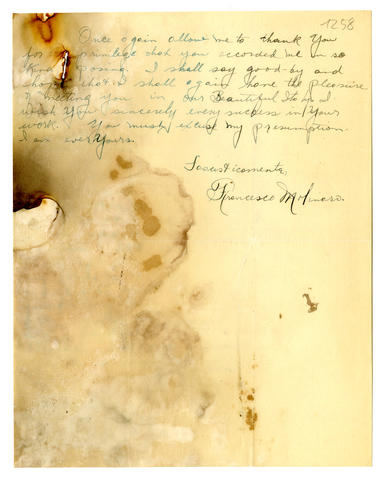 1258
Once again allow me to thank You
for privilege that you accorded me in so
kind posing. I shall say good-by and
hope that I shall again have the pleasure
of meeting You in our Beautiful Italy. I
wish You sincerely every success in Your
work. You must excuse my presumption.
I am ever Yours.
Francesco Molinaro.